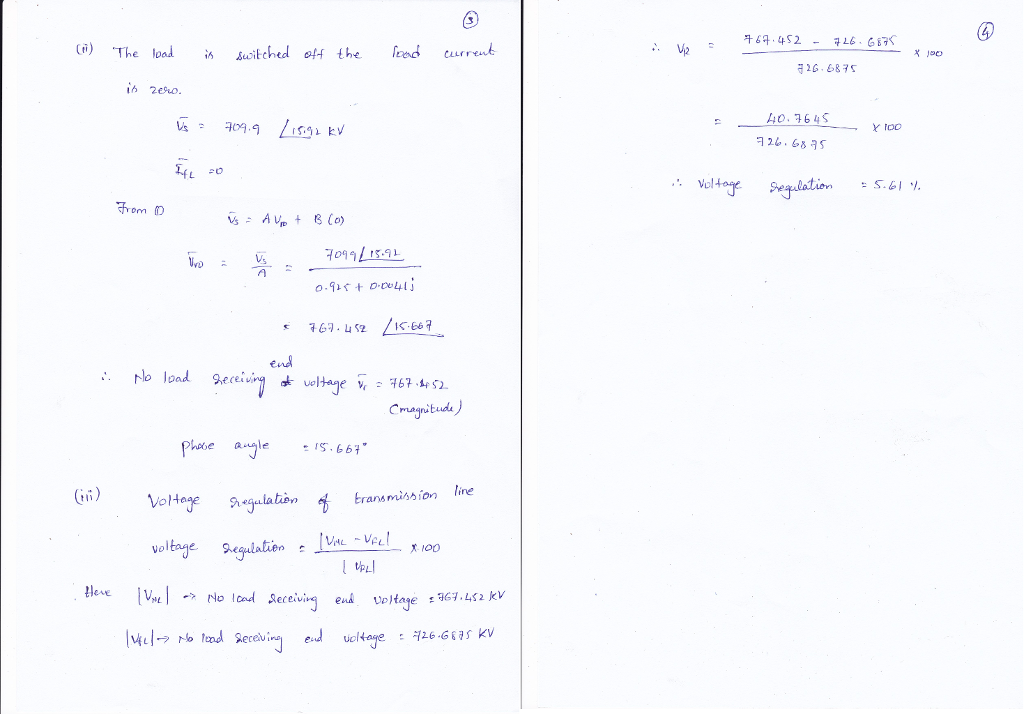 ③
(ii) The load is switched off the load current
is zero.
V̅s = 709.9 ∠15.92 kV
I̅fL = 0
From ①
V̅s = A Vro + B (0)
V̅ro = V̅s / A = 7099∠15.92 / 0.925 + 0.0041j
= 767.452 ∠15.667
∴ No load receiving end voltage V̅r = 767.452
(magnitude)
phase angle = 15.667°
(iii) Voltage regulation of transmission line
voltage regulation = |VNL - VFL| / |VFL| × 100
Here |VNL| → No load receiving end voltage = 767.452 kV
|VfL| → No load receiving end voltage = 726.6875 kV
④
∴ VR = 767.452 - 726.6875 / 726.6875 × 100
= 40.7645 / 726.6875 × 100
∴ Voltage regulation = 5.61 %